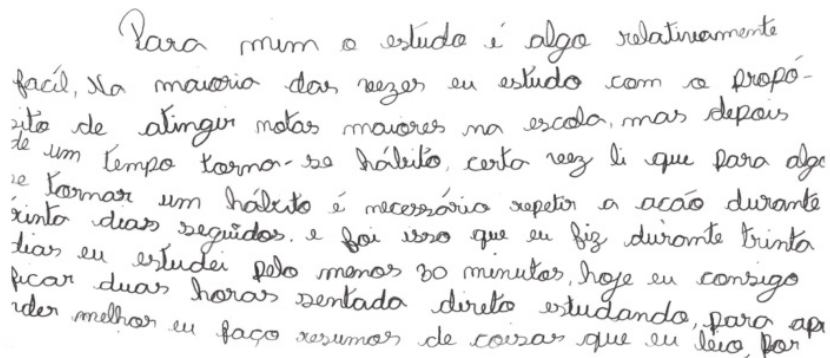 Para mim o estudo é algo relativamente
fácil, Na maioria das vezes eu estudo com o propó-
sito de atingir notas maiores na escola, mas depois
de um tempo torna-se hábito, certa vez li que para algo
se tornar um hábito é necessário repetir a acão durante
trinta dias seguidos. e foi isso que eu fiz durante trinta
dias eu estudei pelo menos 30 minutos, hoje eu consigo
ficar duas horas sentada direto estudando, para apr
nder melhor eu faço resumos de coisas que eu leio, por